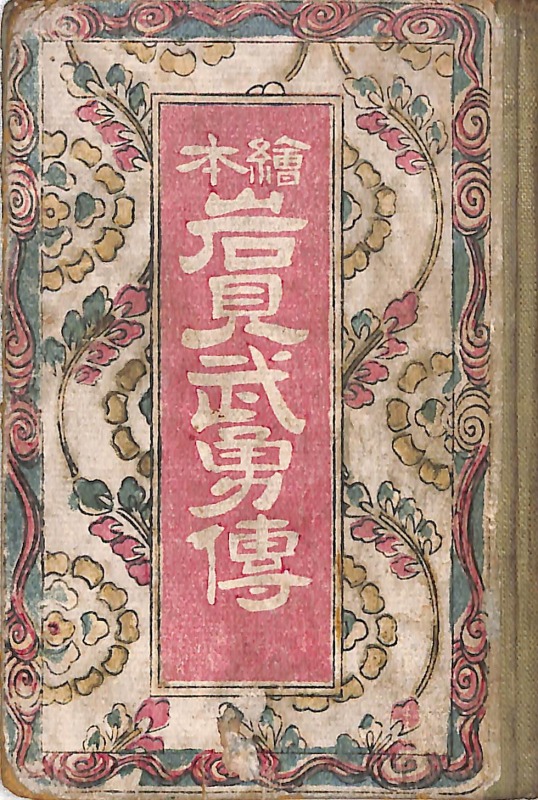 繪本
岩見武勇傳